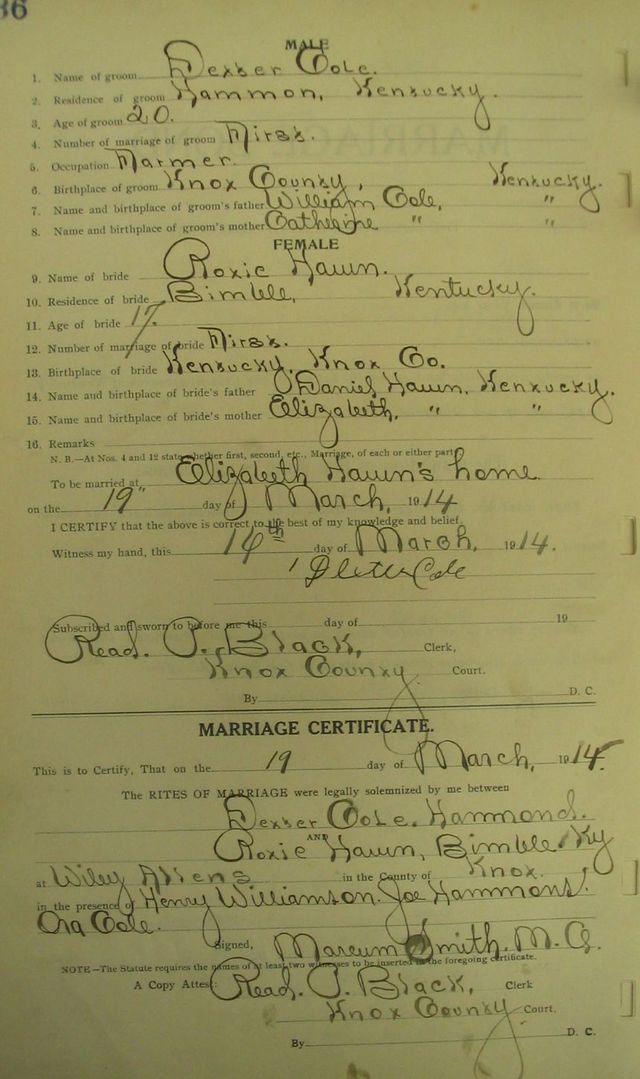 36
MALE
1. Name of groom Dexter Cole.
2. Residence of groom Hammon, Kentucky.
3. Age of groom 20.
4. Number of marriage of groom First.
5. Occupation Farmer.
6. Birthplace of groom Knox County, Kentucky.
7. Name and birthplace of groom's father William Cole, "
8. Name and birthplace of groom's mother Catherine " "
FEMALE
9. Name of bride Roxie Hawn.
10. Residence of bride Bimble, Kentucky.
11. Age of bride 17.
12. Number of marriage of bride First.
13. Birthplace of bride Kentucky, Knox Co.
14. Name and birthplace of bride's father Daniel Hawn, Kentucky.
15. Name and birthplace of bride's mother Elizabeth, " "
16. Remarks
N. B.—At Nos. 4 and 12 state whether first, second, etc., Marriage, of each or either part
To be married at Elizabeth Hawn's home
on the 19" day of March, 1914
I CERTIFY that the above is correct to the best of my knowledge and belief
Witness my hand, this 14th day of March, 1914.
Cole
Subscribed and sworn to before me this day of 19
Read. P. Black, Clerk,
Knox County Court.
By D. C.
MARRIAGE CERTIFICATE.
This is to Certify, That on the 19 day of March, 1914.
The RITES OF MARRIAGE were legally solemnized by me between
Dexter Cole, Hammond.
AND
Roxie Hawn, Bimble Ky
at Wiley in the County of Knox,
in the presence of Henry Williamson. Joe Hammons.
Ora Cole.
Signed, Marcum Smith. M. G.
NOTE—The Statute requires the names of at least two witnesses to be inserted in the foregoing certificate.
A Copy Attest: Read. P. Black, Clerk
Knox County Court.
By D. C.